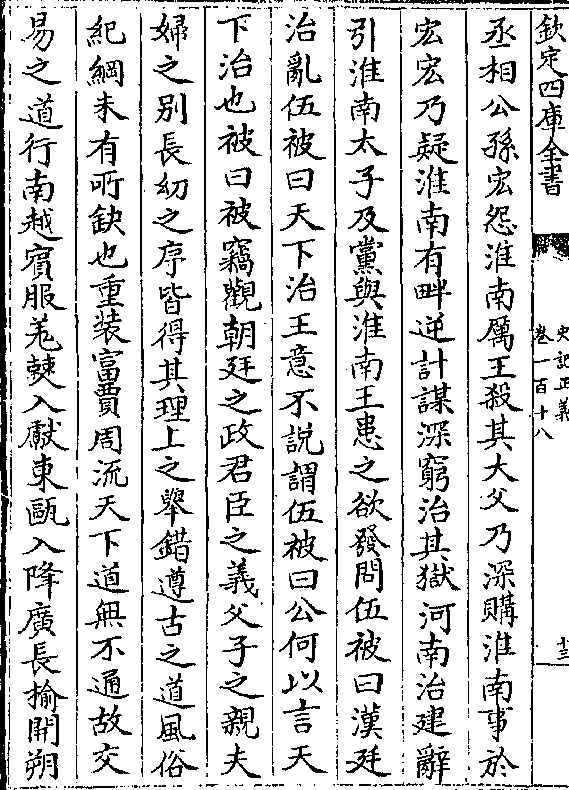 欽定四庫全書
史記正義
卷一百十八
十三
丞相公孫宏怨淮南厲王殺其大父乃深購淮南事於
宏宏乃疑淮南有畔逆計謀深窮治其獄河南治建辭
引淮南太子及黨與淮南王患之欲發問伍被曰漢廷
治亂伍被曰天下治王意不説謂伍被曰公何以言天
下治也被曰被竊觀朝廷之政君臣之義父子之親夫
婦之别長幼之序皆得其理上之舉錯遵古之道風俗
紀綱未有所缺也重装富賈周流天下道無不通故交
易之道行南越賓服羌僰入獻東甌入降廣長榆開朔